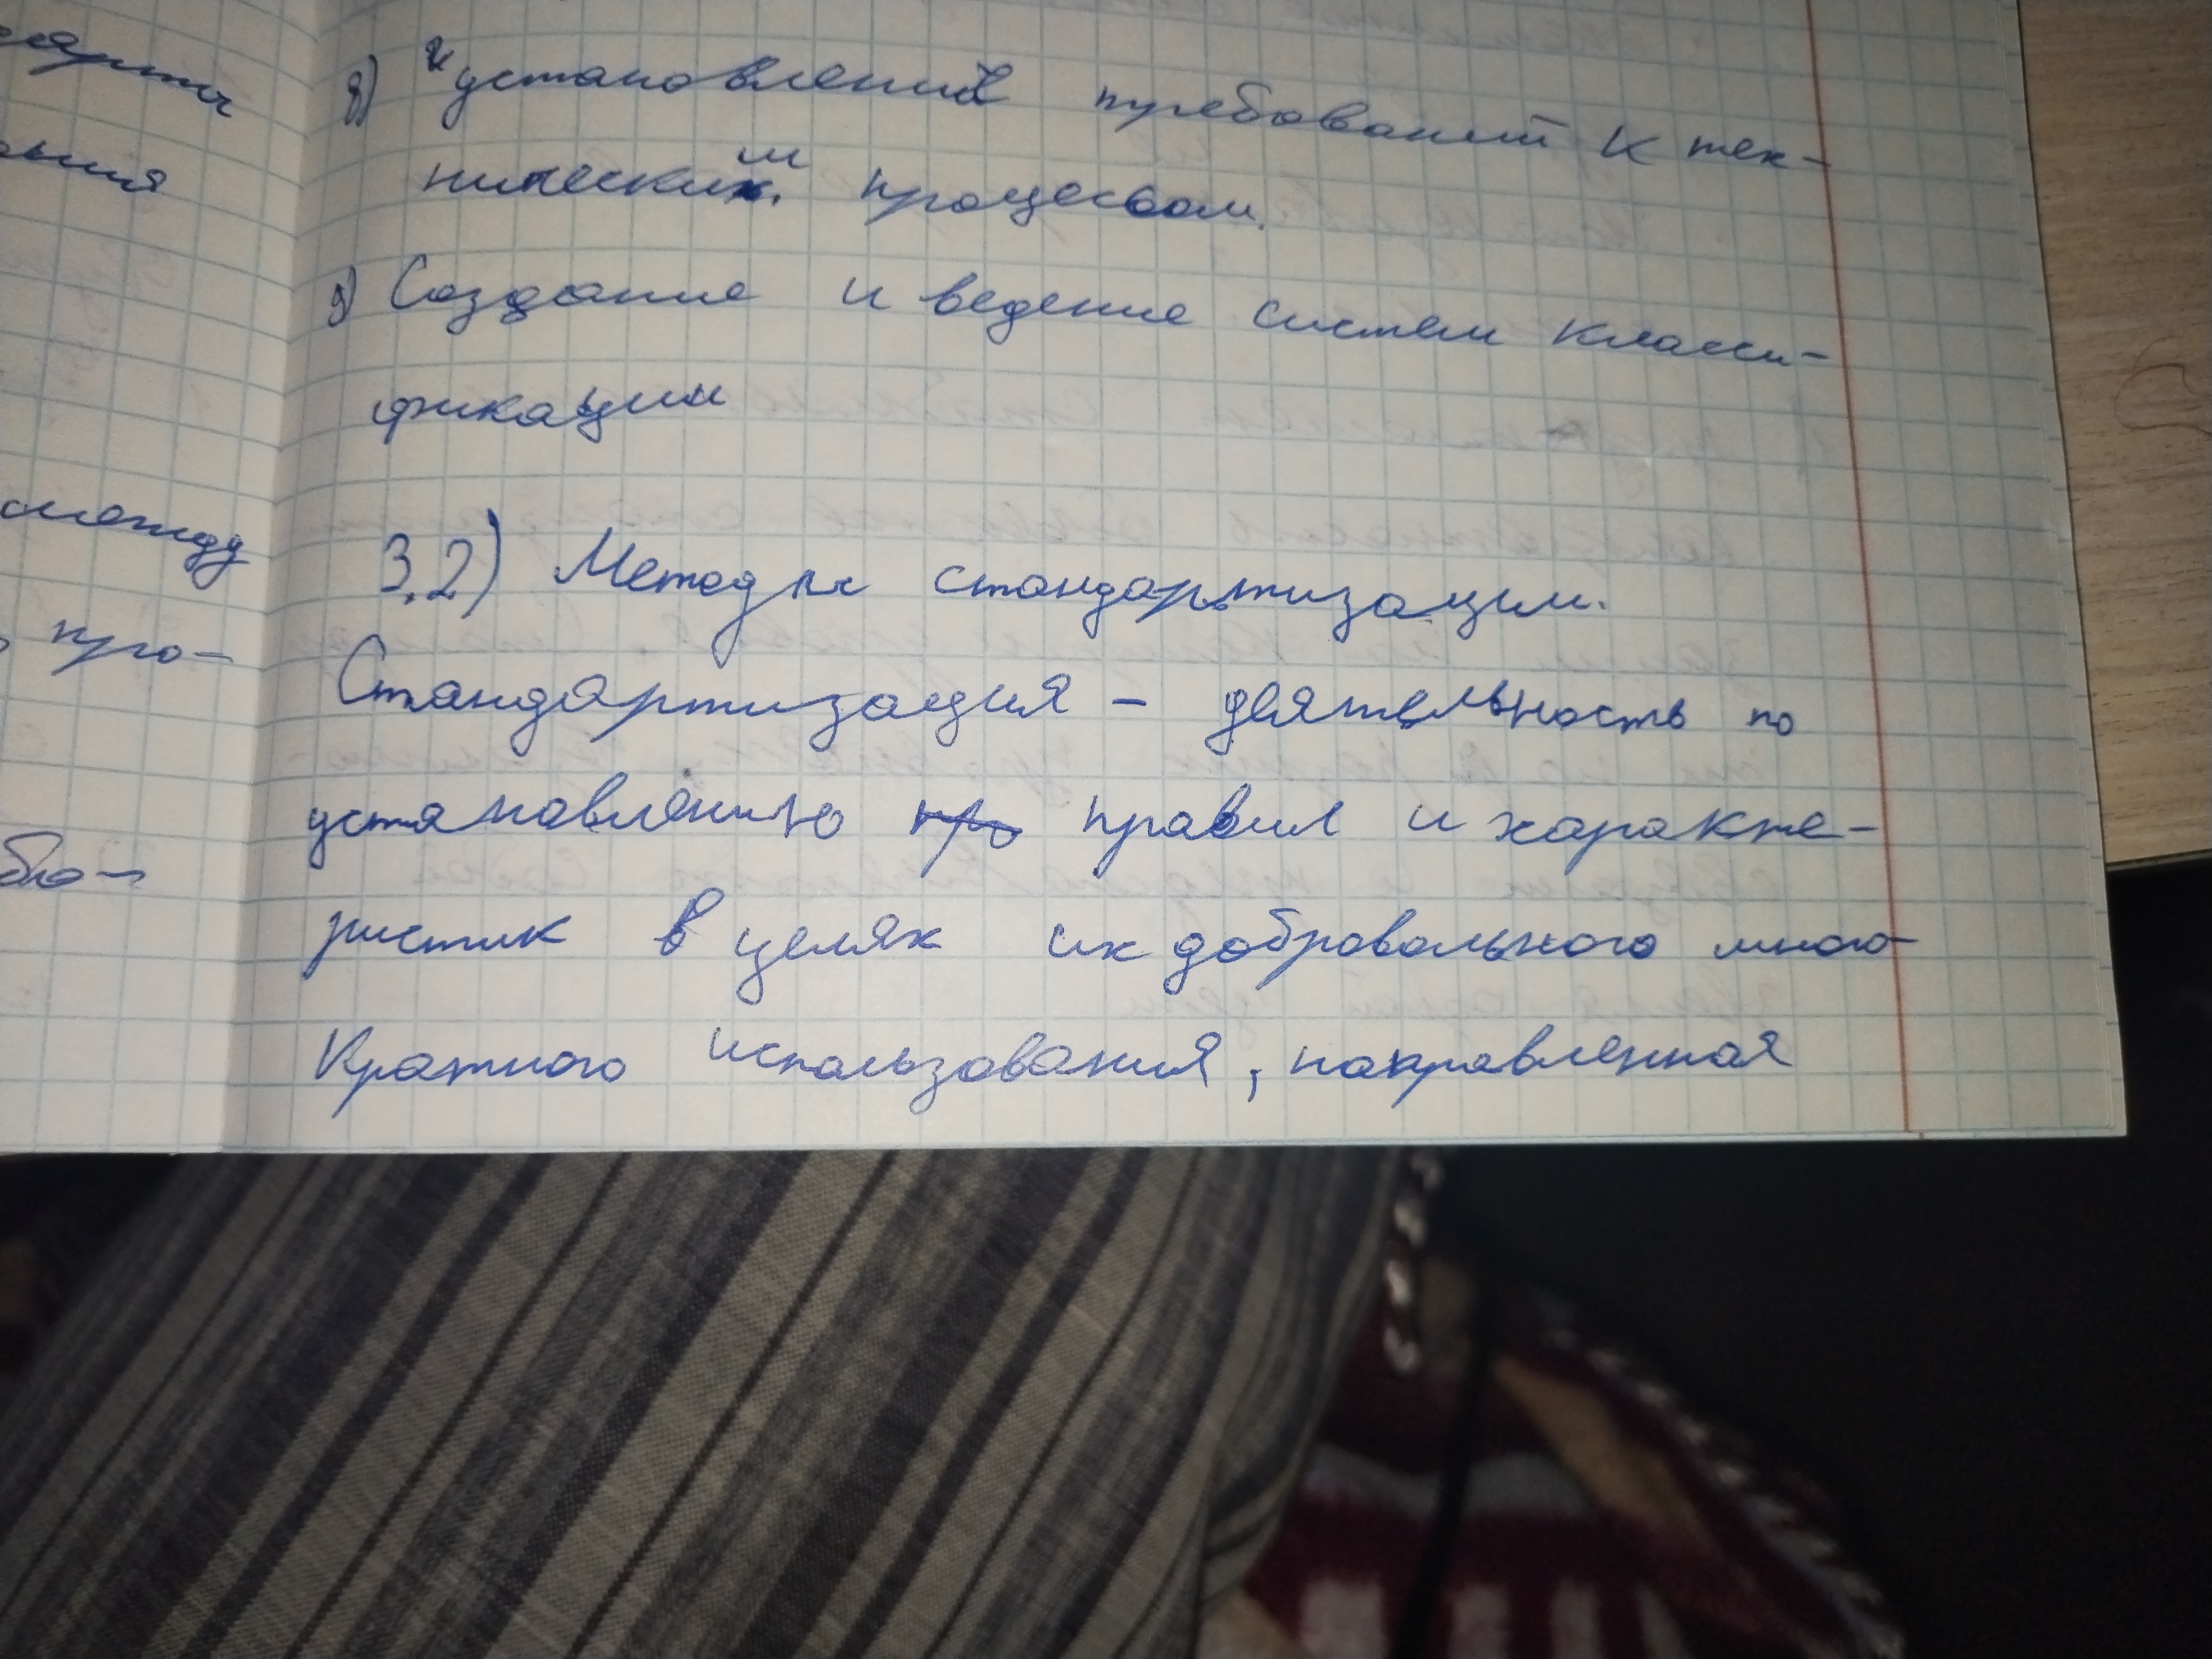 8) и установлений требований к тех-
ническим процессам.
9) Создание и ведение систем класси-
фикации
3.2) Методы стандартизации.
Стандартизация - деятельность по
установлению про правил и характе-
ристик в целях их добровольного много-
кратного использования, направленная
между
про-